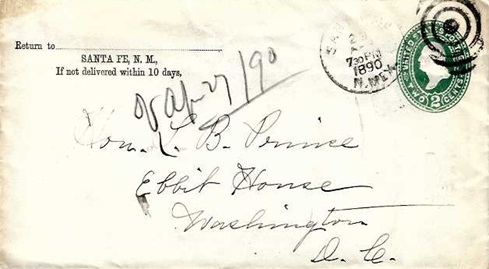 Return to
SANTA FE, N. M.,
If not delivered within 10 days,
7 30 PM
1890
N. MEX.
UNITED STATES
2 CENTS
27/90
Hon. L. B. Prince
Ebbit House
Washington
D. C.